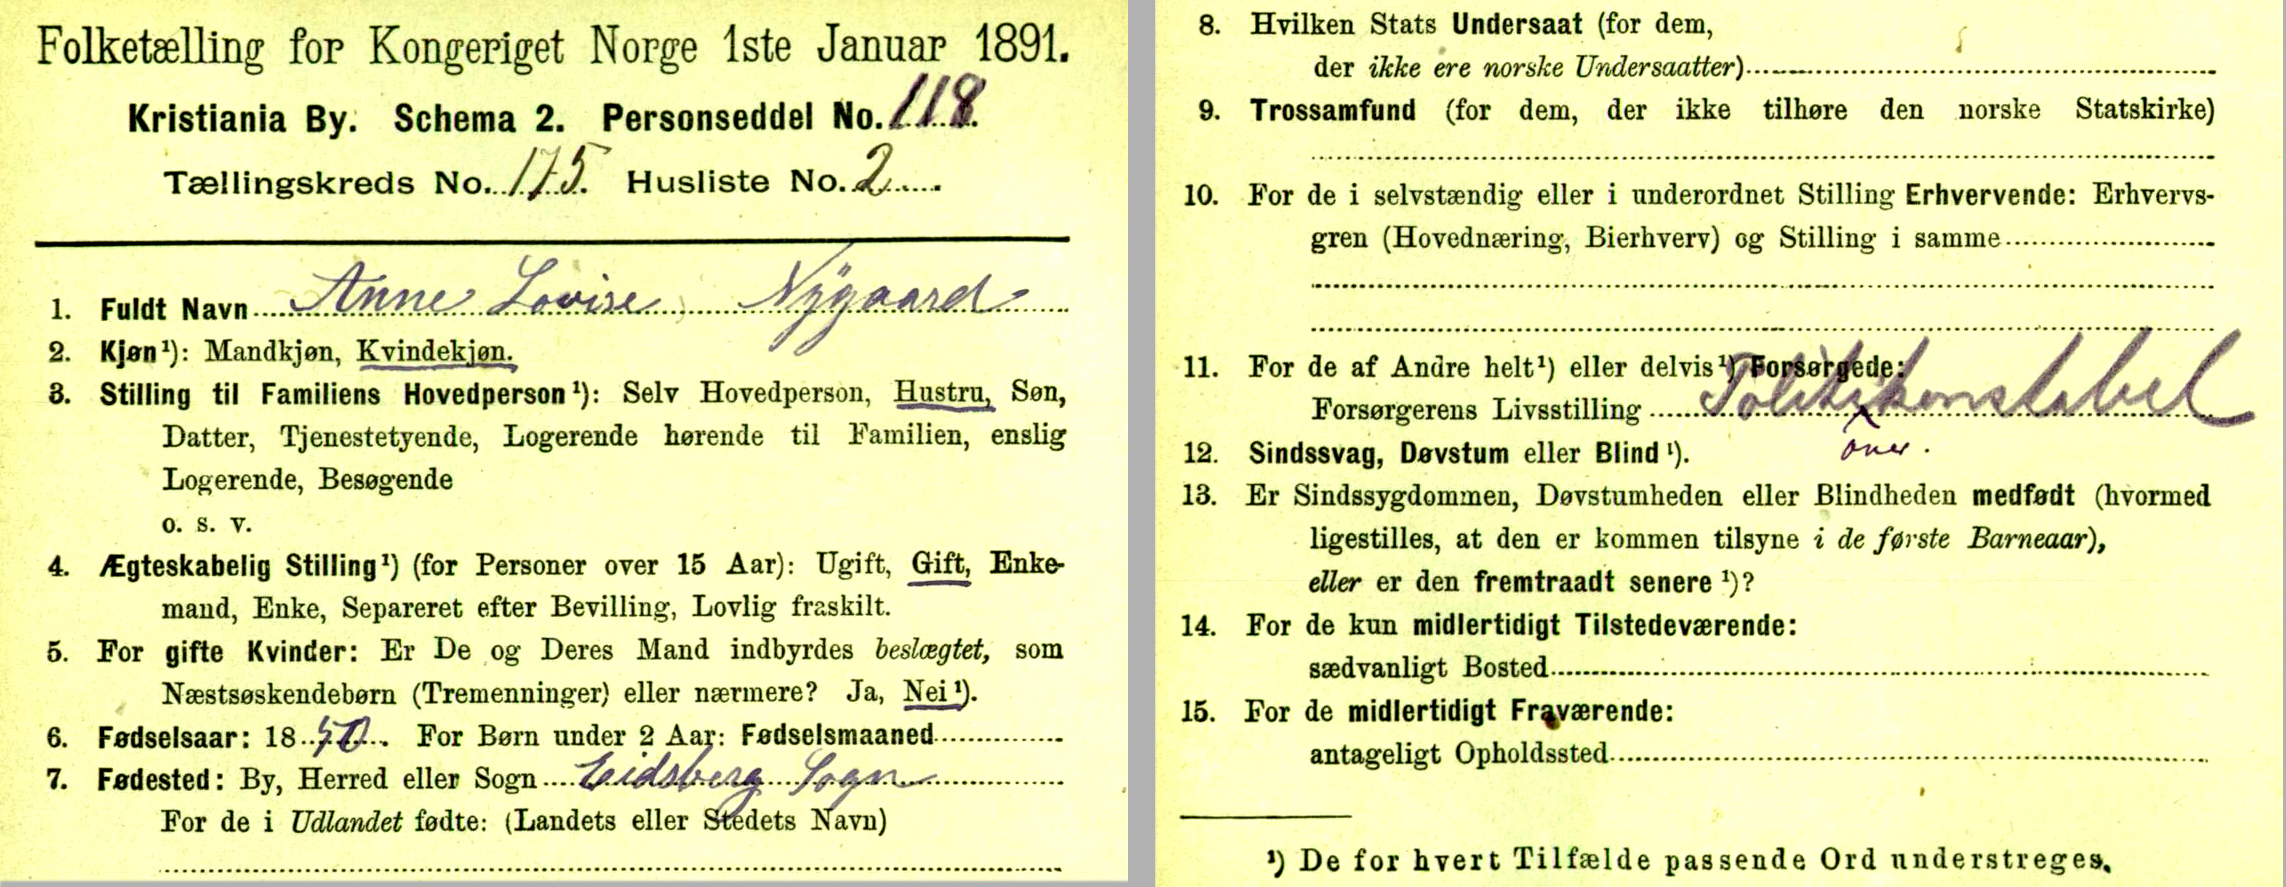 Folketælling for Kongeriget Norge 1ste Januar 1891.
Kristiania By. Schema 2. Personseddel No. 118.
Tællingskreds No. 175. Husliste No. 2
1. Fuldt Navn Anne Lovise Nÿgaard
2. Kjøn ¹): Mandkjøn, Kvindekjøn.
3. Stilling til Familiens Hovedperson ¹): Selv Hovedperson, Hustru, Søn,
Datter, Tjenestetyende, Logerende hørende til Familien, enslig
Logerende, Besøgende
o. s. v.
4. Ægteskabelig Stilling ¹) (for Personer over 15 Aar): Ugift, Gift, Enke-
mand, Enke, Separeret efter Bevilling, Lovlig fraskilt.
5. For gifte Kvinder: Er De og Deres Mand indbyrdes beslægtet, som
Næstsøskendebørn (Tremenninger) eller nærmere? Ja, Nei ¹).
6. Fødselsaar: 1850. For Børn under 2 Aar: Fødselsmaaned
7. Fødested: By, Herred eller Sogn Eidsberg Sogn
For de i Udlandet fødte: (Landets eller Stedets Navn)
8. Hvilken Stats Undersaat (for dem,
der ikke ere norske Undersaatter)
9. Trossamfund (for dem, der ikke tilhøre den norske Statskirke)
10. For de i selvstændig eller i underordnet Stilling Erhvervende: Erhvervs-
gren (Hovednæring, Bierhverv) og Stilling i samme
11. For de af Andre helt ¹) eller delvis ¹) Forsørgede:
Forsørgerens Livsstilling Politikonstabel
over.
12. Sindssvag, Døvstum eller Blind ¹).
13. Er Sindssygdommen, Døvstumheden eller Blindheden medfødt (hvormed
ligestilles, at den er kommen tilsyne i de første Barneaar),
eller er den fremtraadt senere ¹)?
14. For de kun midlertidigt Tilstedeværende:
sædvanligt Bosted
15. For de midlertidigt Fraværende:
antageligt Opholdssted
¹) De for hvert Tilfælde passende Ord understreges.